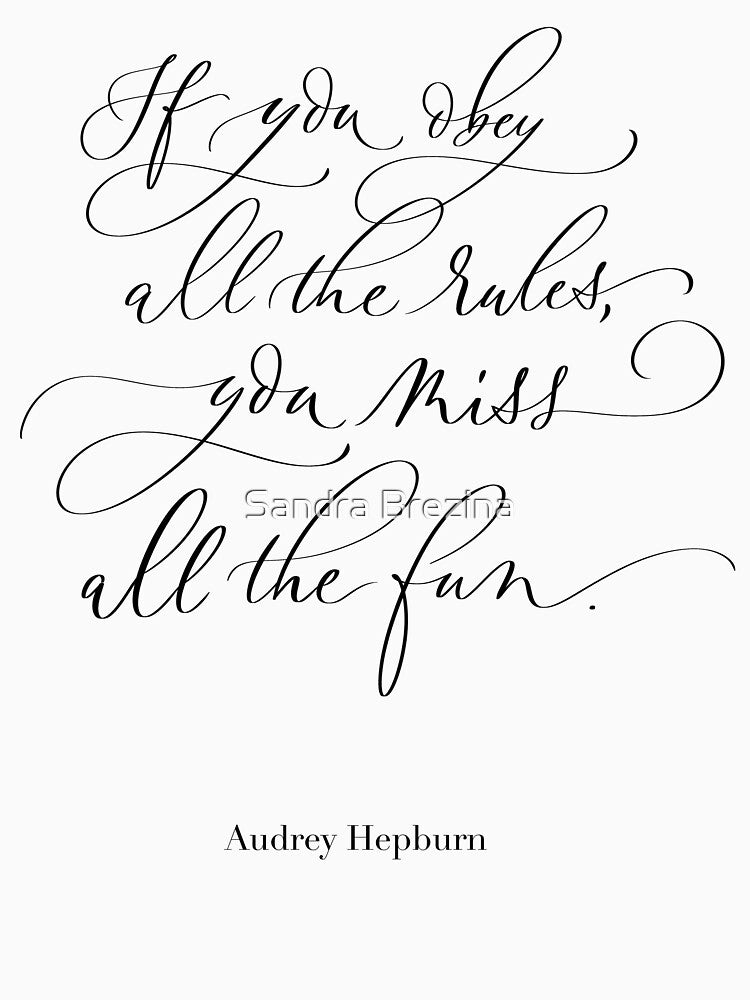 If you obey
all the rules,
you miss
Sandra Brezina
all the fun.
Audrey Hepburn